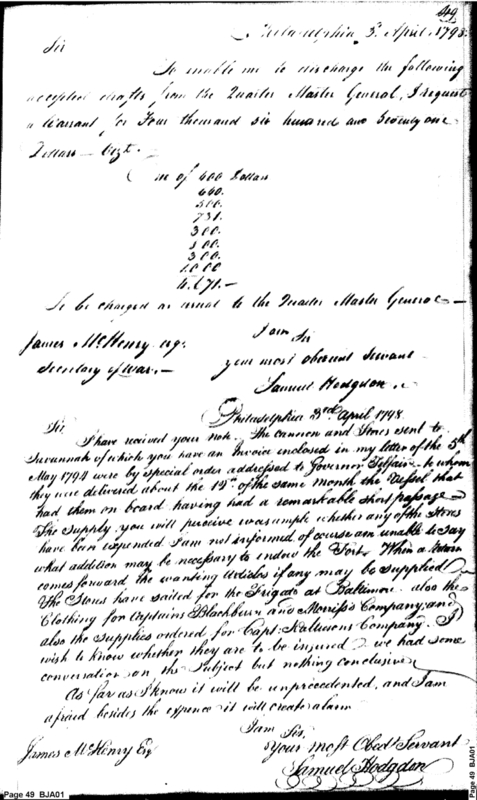 49
Philadelphia 3d. April 1798.
Sir
To enable me to discharge the following
accepted drafts from the Quarter Master General, I request
a Warrant for Four thousand six hundred and Seventy one
Dollars — Vizt. —
One of 600 Dollars
640.
500.
731.
300.
100.
300.
1000
4,671.—
To be charged as usual to the Quarter Master General —
I am
Sir
James McHenry esq:
your most obedient Servant
Secretary of War. —
Samuel Hodgdon
Philadelphia 3rd April 1798.
Sir
I have received your note. The cannon and Stores sent to
Savannah of which you have an Invoice enclosed in my letter of the 5th
May 1794 were by special order addressed to Governor Telfair — to whom
they were delivered about the 19th of the same month the Vessel that
had them on board having had a remarkable short passage —
The supply, you will perceive was ample whether any of the Stores
have been expended I am not informed of course am unable to say
what addition may be necessary to endow the Fort. When a return
comes forward the wanting Articles if any may be supplied
The Stores have sailed for the Frigate at Baltimore. also the
Clothing for Captains Blackburn and Morris's Company, and
also the supplies ordered for Capt. Company. I
wish to know whether they are to be insured — we had some
conversation on the subject but nothing conclusive
As far as I know it will be unprecedented, and I am
afraid besides the expence it will create alarm
I am Sir,
Your most Obedt Servant
James McHenry Esq
Samuel Hodgdon
Page 49 BJA01
Page 49 BJA01